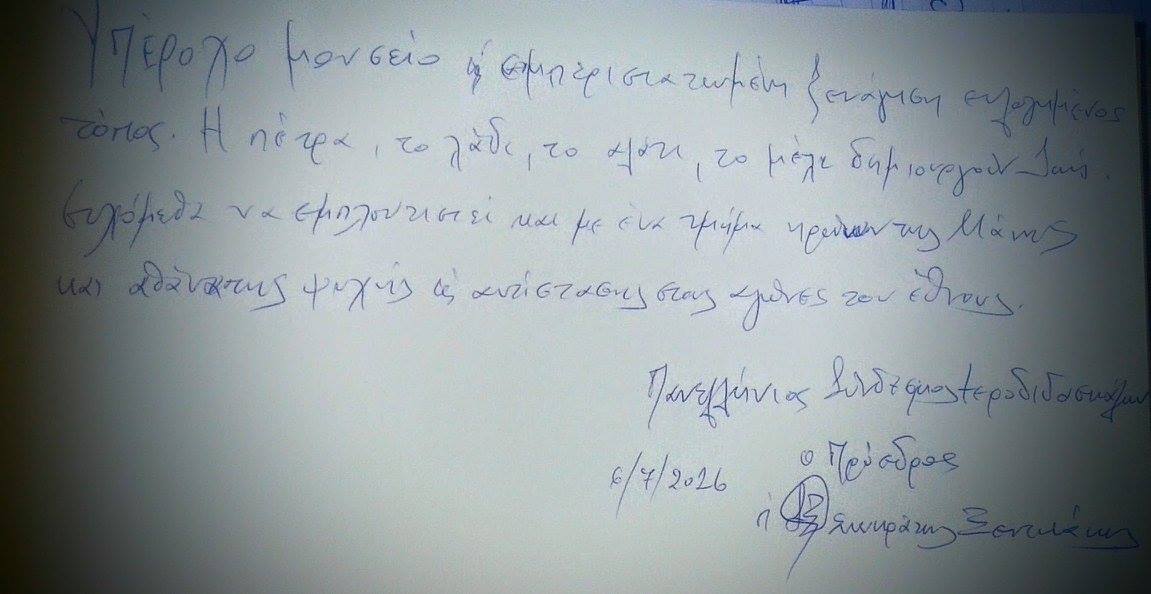 Υπέροχο μουσείο & εμπεριστατωμένη ξενάγηση ευλογημένος
τόπος. Η πέτρα, το λάδι, το αλάτι, το μέλι δημιουργούν
Ευχόμεθα να εμπλουτιστεί και με ένα τμήμα ηρώων της Μάνης
και αθάνατης ψυχής & αντίστασης στους αγώνες του έθνους.
Πανελλήνιος Σύνδεσμος Ιεροδιδασκάλων
ο Πρόεδρος
6/7/2016
Σωκράτης